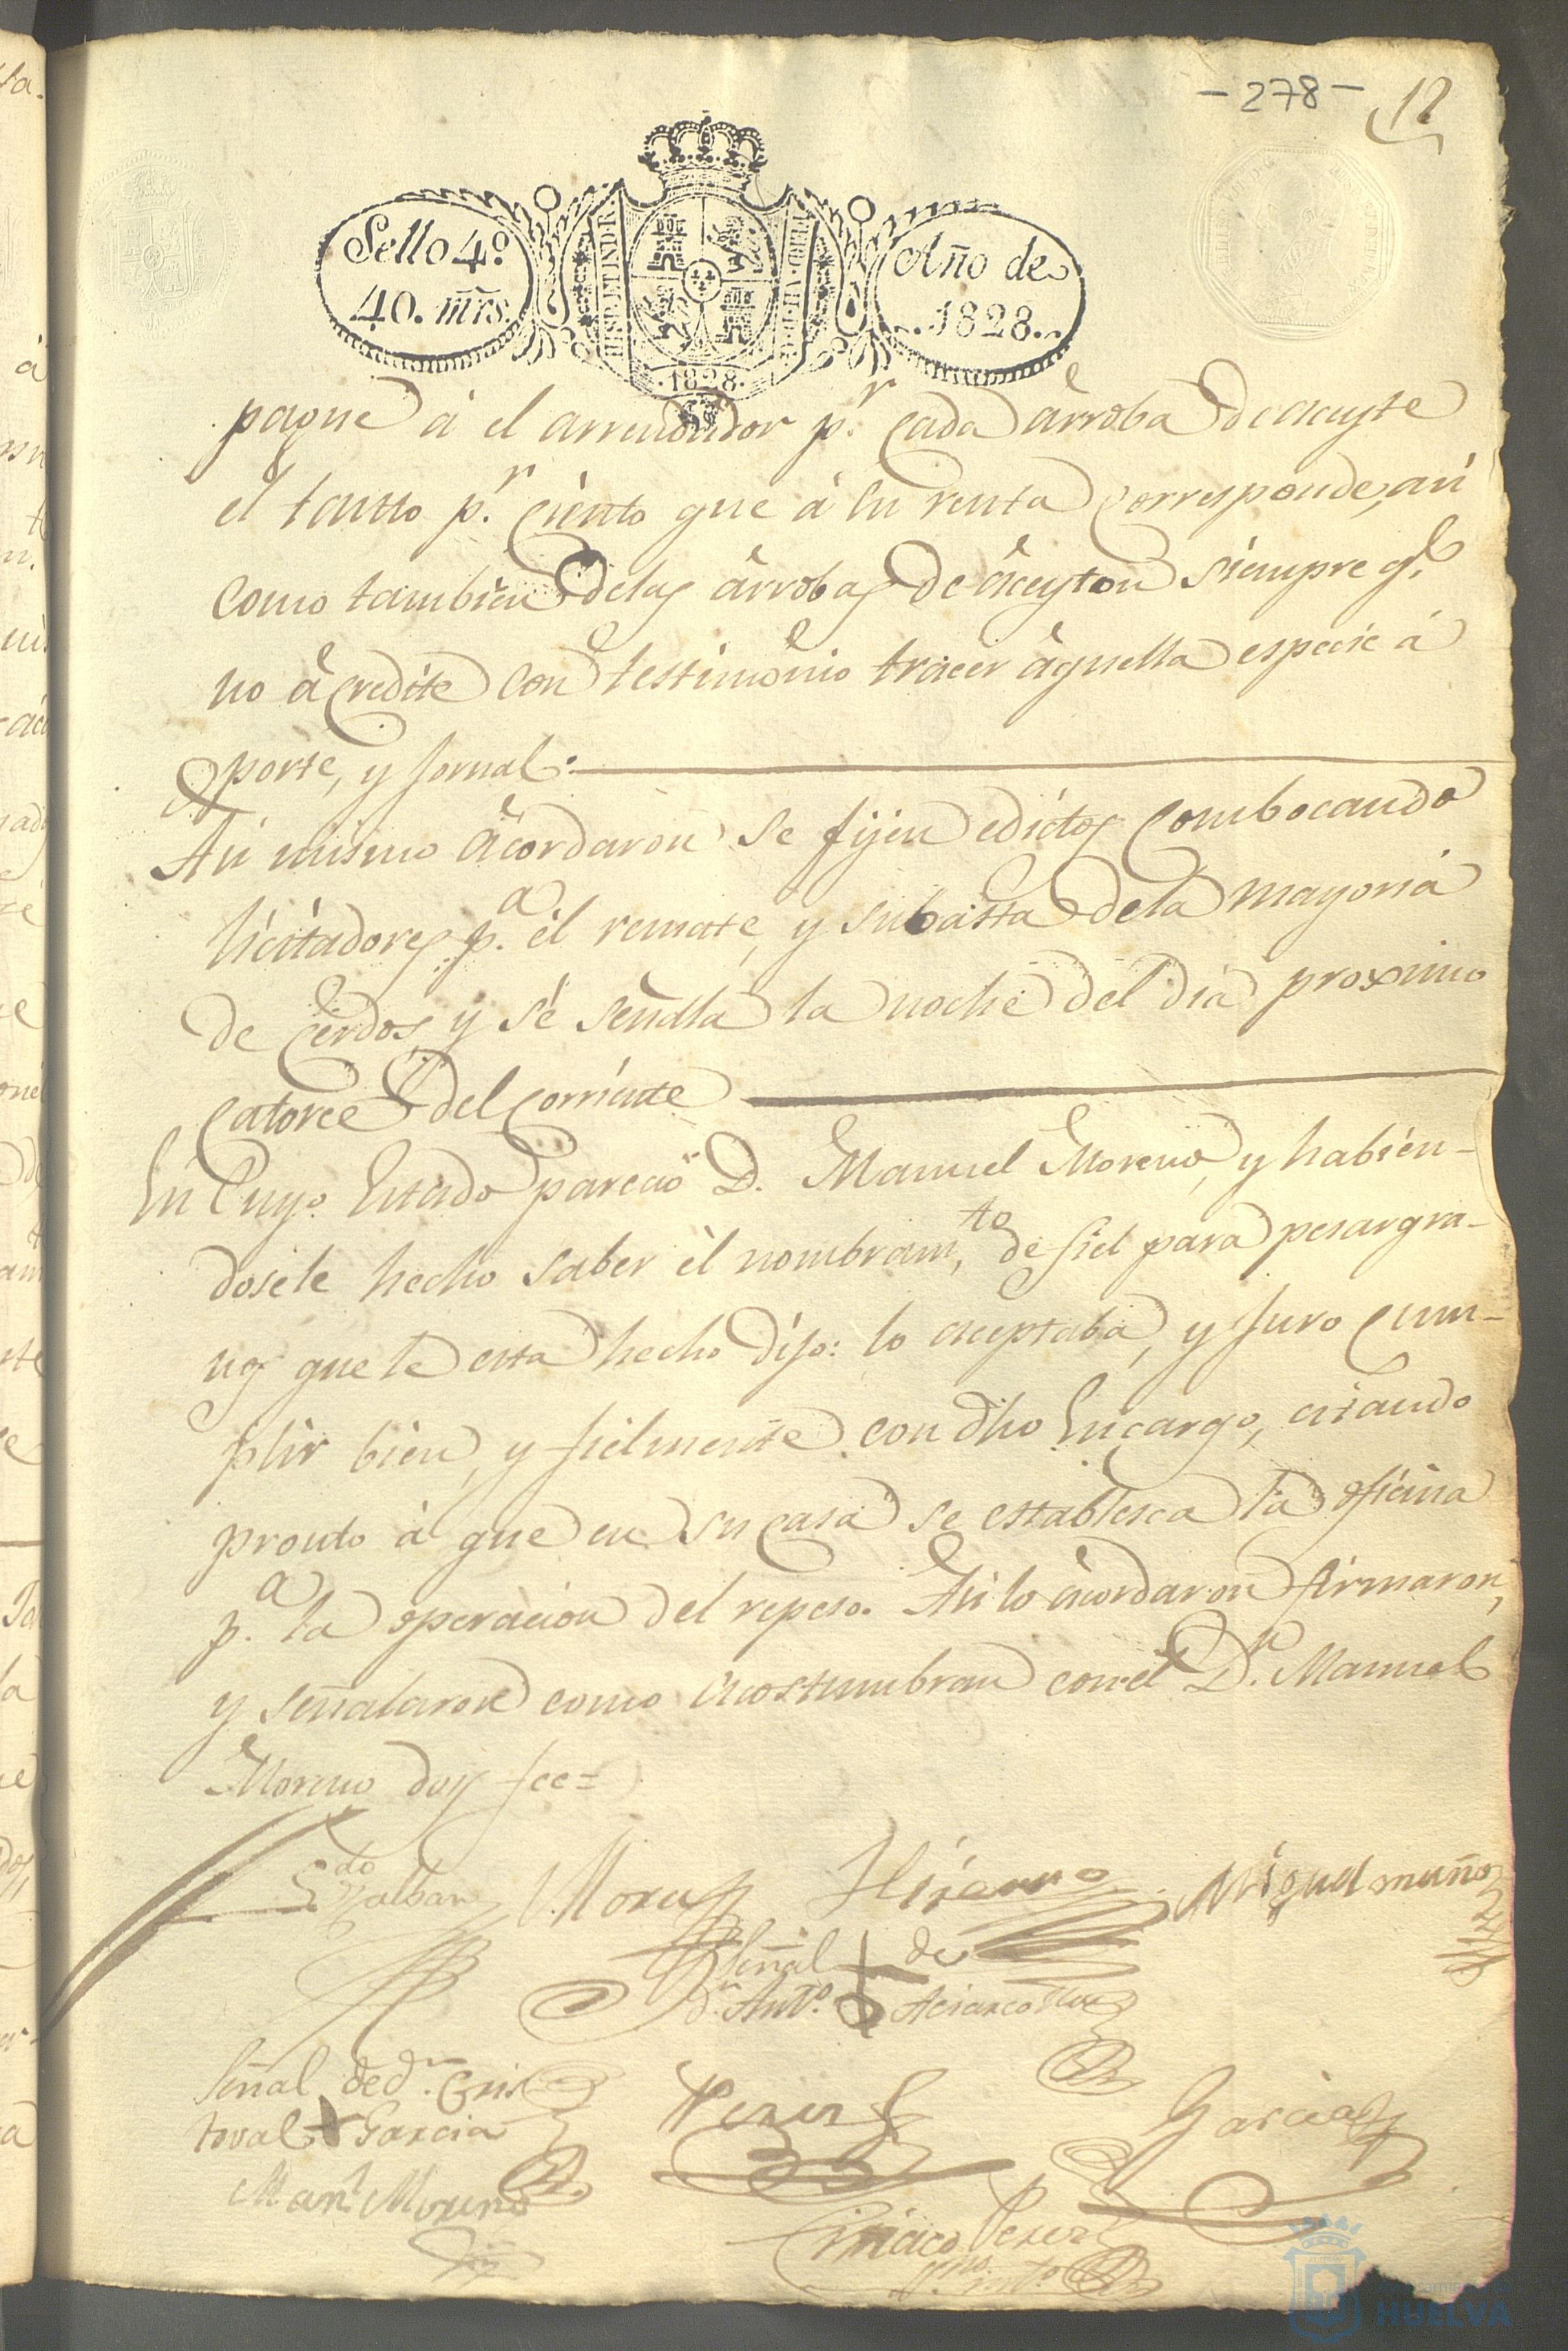 -278- 12
Sello 4º.
40. mrs.
HISP. ET IND. R.
FERD. VII. D. G.
Año de
1828.
.1828.
pague à el arrendador p.r cada àrroba de aceyte
el tantto p.r ciento que à su renta corresponde, asi
como tambien delas àrrobas de àceyton siempre q.e
no àcredite con testimonio traer àquella especie à
porte, y jornal.
Asi mismo àcordaron se fijen edictos combocando
licitadores p.a èl remate, y subasta dela mayoria
de cerdos, y sè señala la noche del dia proximo
catorce del corriente
En cuyo estado pareciò D. Manuel Moreno, y habien-
dosele hecho saber èl nombram.to de fiel para pesar gra-
nos que le esta hecho dijo: lo aceptaba, y juro cum-
plir bien, y fielmente con dho encargo, estando
pronto à que en su casa se establesca la oficina
p.a la operacion del repeso. Asi lo àcordaron firmaron,
y señalaron como acostumbran con el D.n Manuel
Moreno doy fee=
Galban Mora Miguel muñoz
Señal + de
d.n Ant.o
Señal de d.n Cris
toval + Garcia Perez Garcia
Man.l Moreno
Ciriaco Perez
HUELVA